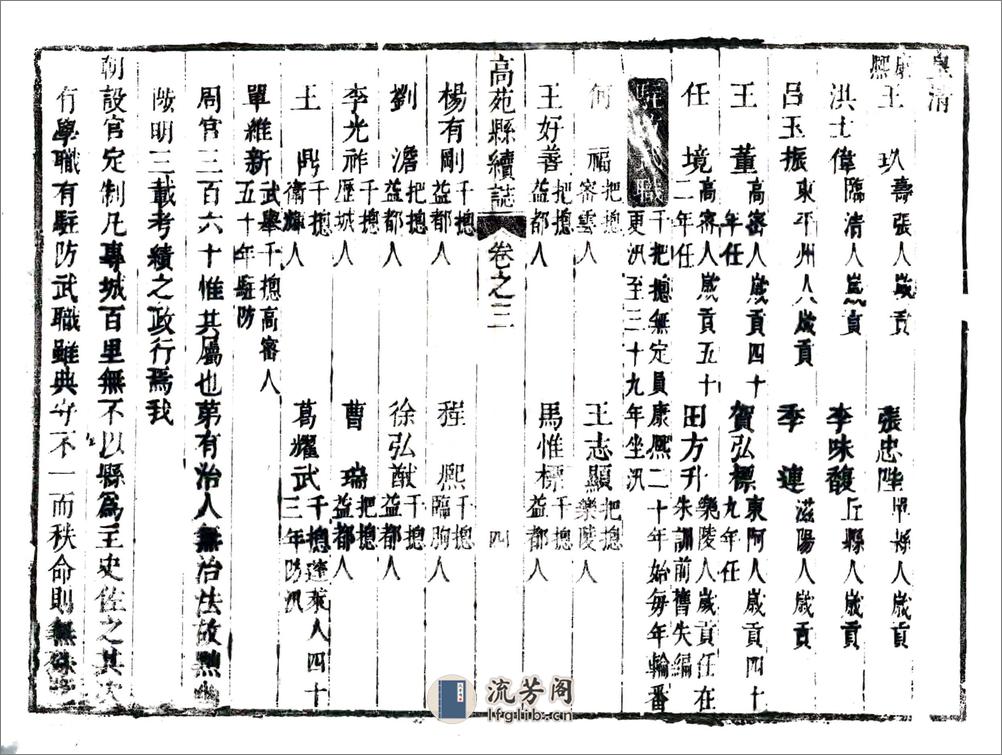 皇清
康熙
王玖 壽張人歲貢 張忠陛 單縣人歲貢
洪士偉 臨清人歲貢 李味馥 丘縣人歲貢
呂玉振 東平州人歲貢 季連 滋陽人歲貢
王董 高密人歲貢四十年任 賀弘標 東阿人歲貢四十九年任
任境 高密人歲貢五十二年任 田方升 樂陵人歲貢任在朱訓前舊失編
駐防武職 千把摠無定員康熙二十年始每年輪番更汛至三十九年坐汛
何福 把摠密雲人 王志顯 把摠樂陵人
王好善 把摠益都人 馬惟標 千摠益都人
高苑縣續誌 卷之三 四
楊有剛 千摠益都人 程熙 千摠臨朐人
劉澹 把摠益都人 徐弘猷 千摠益都人
李光祚 千摠歷城人 曹瑞 把摠益都人
王鼎 千摠衛輝人 葛耀武 千摠蓬萊人四十三年防汛
單維新 武舉千摠高密人五十年駐防
周官三百六十惟其屬也第有治人無治法故黜
陟明三載考績之政行焉我
朝設官定制凡專城百里無不以縣爲王史佐之其次
有學職有駐防武職雖典守不一而秩命則無